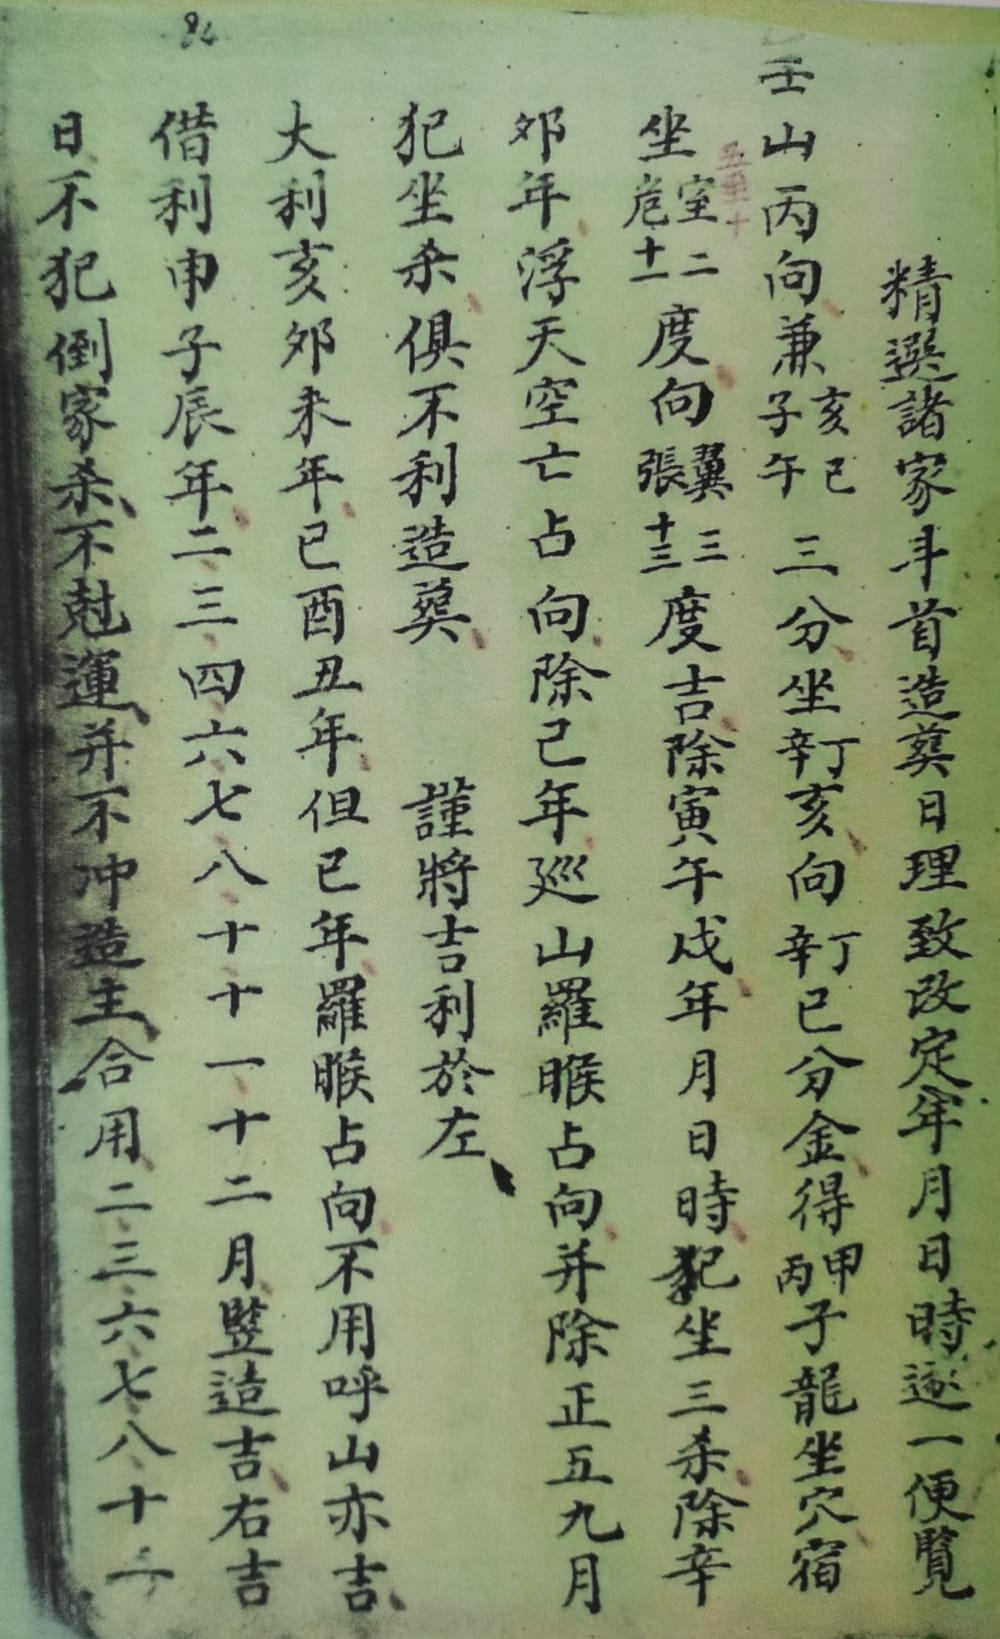 精選諸家斗首造葬日理致改定年月日時逐一便覧
壬山丙向兼亥巳子午三分坐丁亥辛亥向丁巳辛巳分金得甲子丙子龍坐穴宿
坐室二危十一度向翼三張十三度吉除寅午戌年月日時犯坐三杀除辛
卯年浮天空亡占向除己年巡山羅睺占向并除正五九月
犯坐杀俱不利造葬 謹將吉利於左
大利亥卯未年巳酉丑年但巳年羅睺占向不用呼山亦吉
借利申子辰年二三四六七八十十一十二月豎造吉右吉
日不犯倒家杀不尅運并不冲造主合用二三六七八十
84